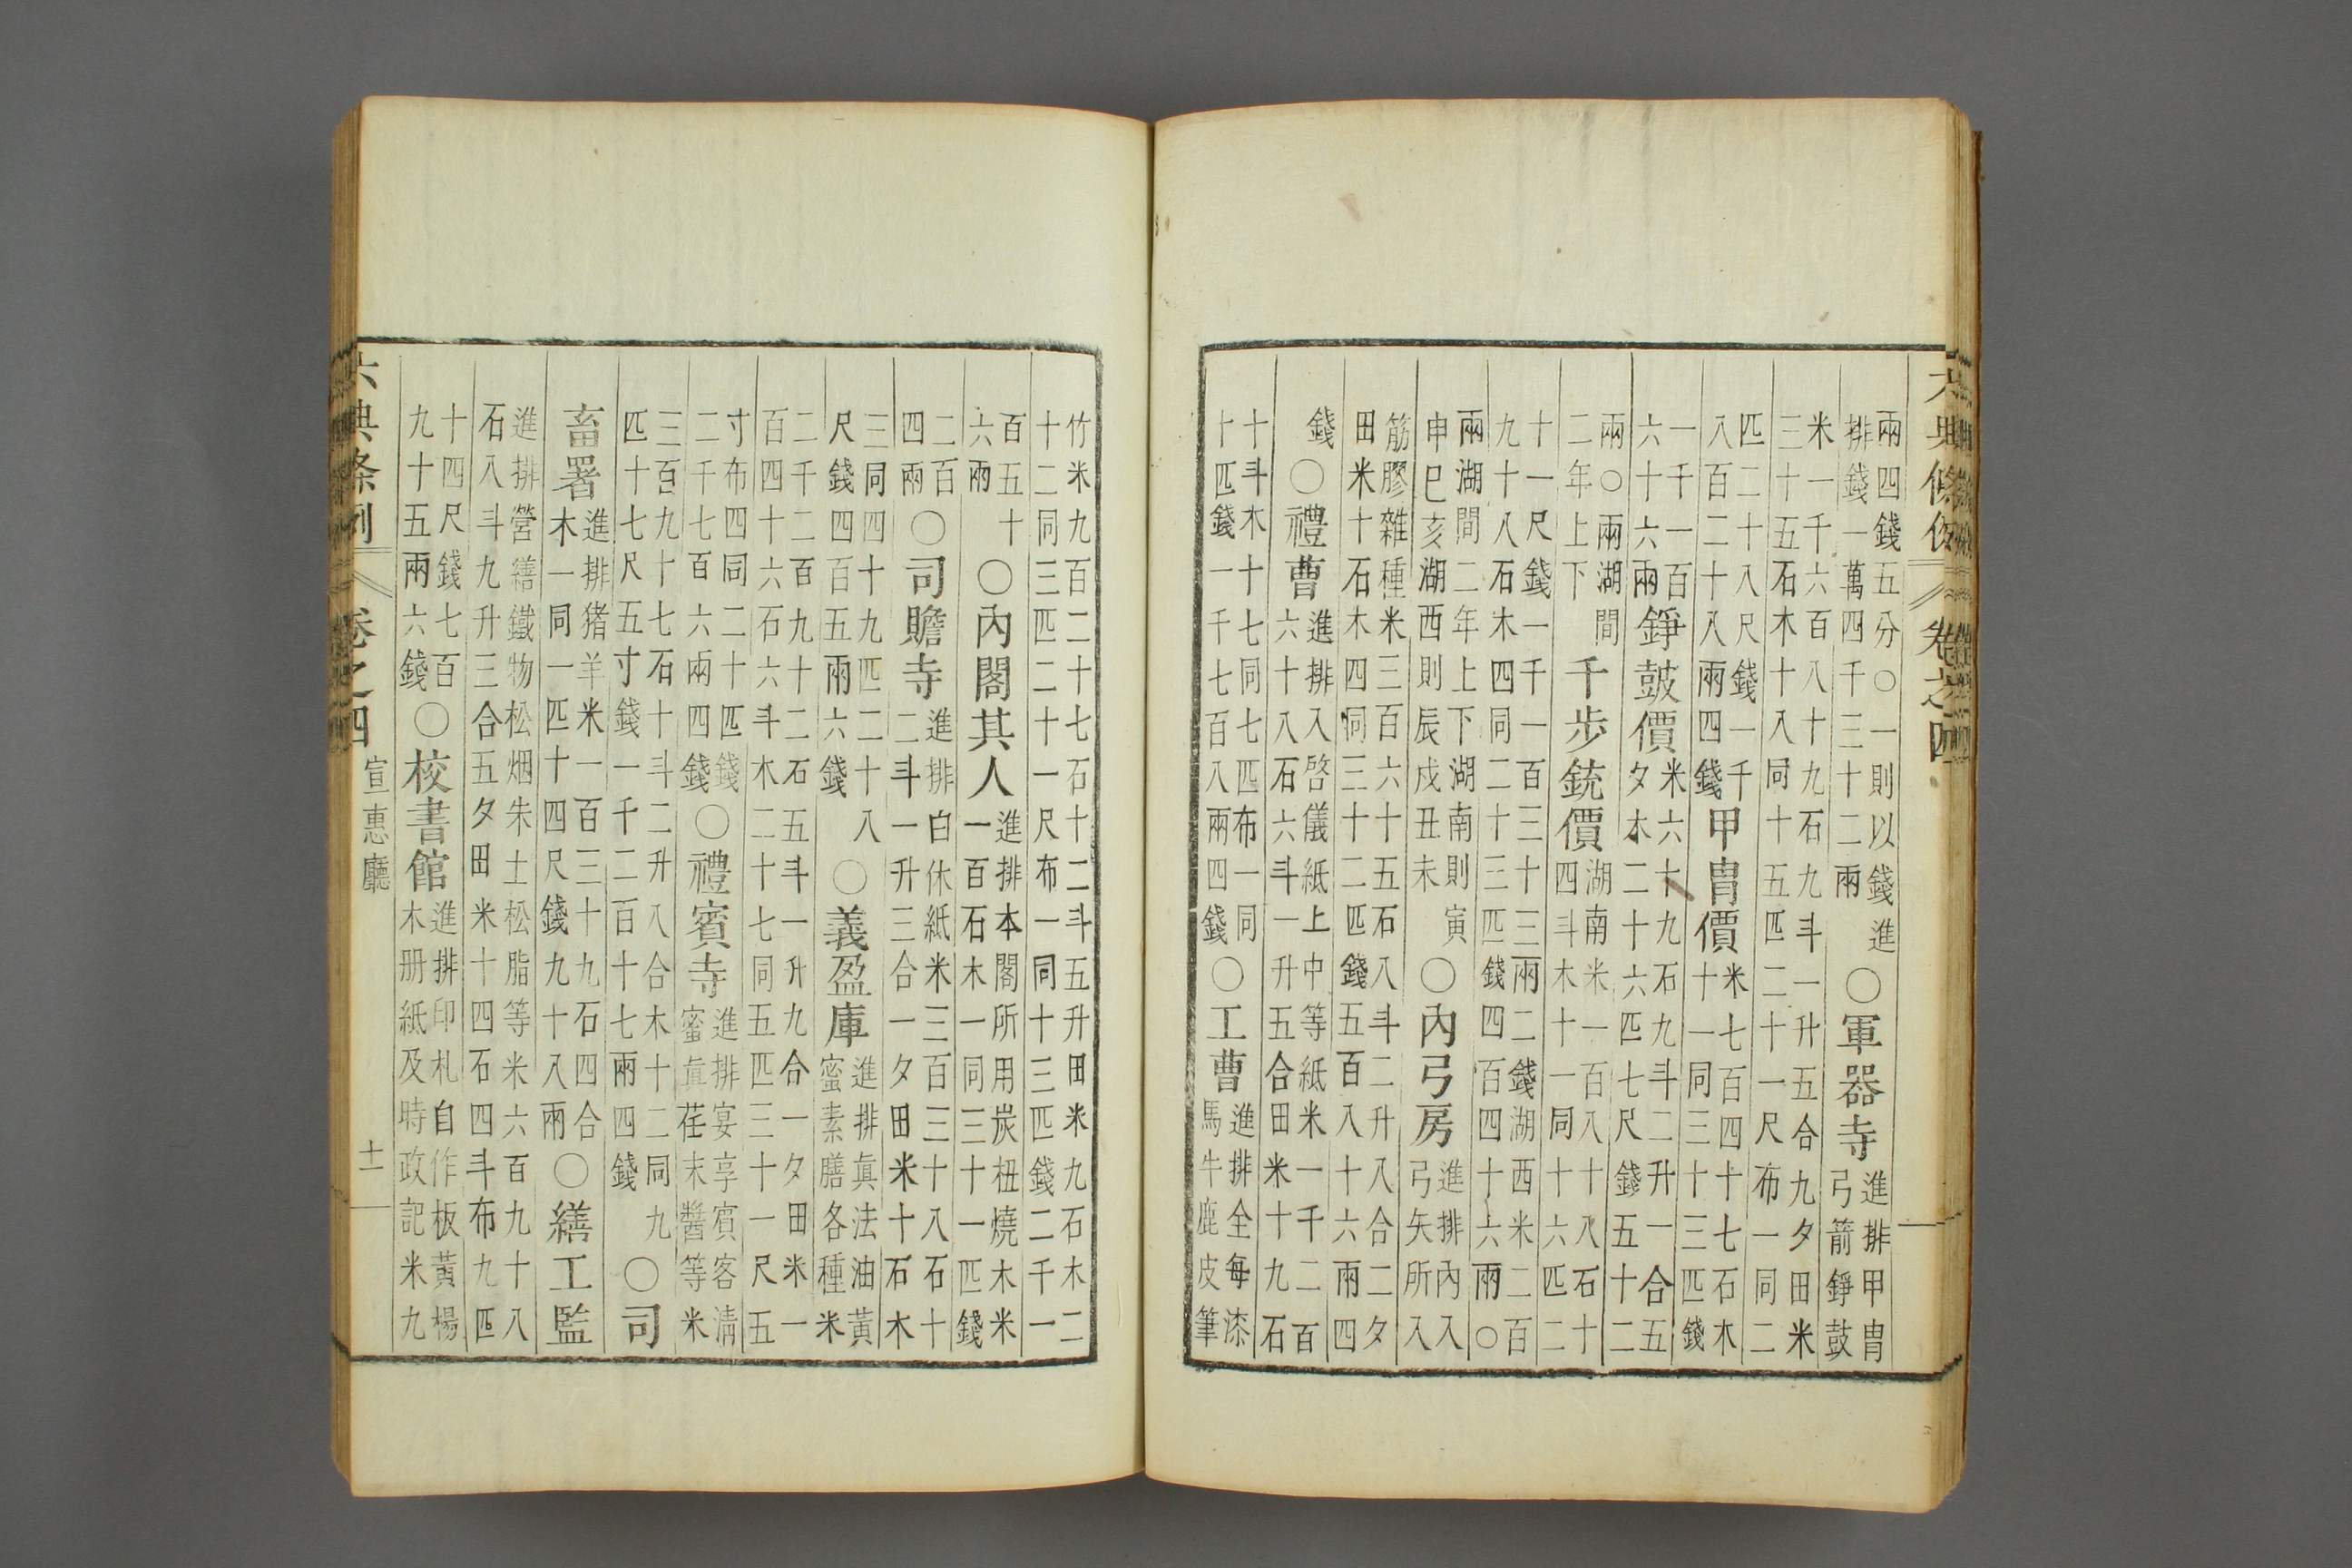 六典條例 卷之四
兩四錢五分○一則以錢進
排錢一萬四千三十二兩
○軍器寺
進排甲冑
弓箭錚鼓
米一千六百八十九石九斗一升五合九夕田米
三十五石木十八同十五匹二十一尺布一同二
匹二十八尺錢一千
八百二十八兩四錢
甲冑價
米七百四十七石木
十一同三十三匹錢
一千一百
六十六兩
錚鼓價
米六十九石九斗二升一合五
夕木二十六匹七尺錢五十二
兩○兩湖間
二年上下
千步銃價
湖南米一百八十八石十
四斗木十一同十六匹二
十一尺錢一千一百三十三兩二錢湖西米二百
九十八石木四同二十三匹錢四百四十六兩○
兩湖間二年上下湖南則寅
申巳亥湖西則辰戌丑未
○內弓房
進排內入
弓矢所入
筋膠雜種米三百六十五石八斗二升八合二夕
田米十石木四同三十二匹錢五百八十六兩四
錢
○禮曹
進排入啓儀紙上中等紙米一千二百
六十八石六斗一升五合田米十九石
十斗木十七同七匹布一同
十匹錢一千七百八兩四錢
○工曹
進排全每漆
馬牛鹿皮筆
竹米九百二十七石十二斗五升田米九石木二
十二同三匹二十一尺布一同十三匹錢二千一
百五十
六兩
○內閣其人
進排本閣所用炭杻燒木米
一百石木一同三十一匹錢
二百
四兩
○司贍寺
進排白休紙米三百三十八石十
二斗一升三合一夕田米十石木
三同四十九匹二十八
尺錢四百五兩六錢
○義盈庫
進排眞法油黃
蜜素膳各種米
二千二百九十二石五斗一升九合一夕田米一
百四十六石六斗木二十七同五匹三十一尺五
寸布四同二十匹錢
二千七百六兩四錢
○禮賓寺
進排宴享賓客淸
蜜眞荏末醬等米
三百九十七石十斗二升八合木十二同九
匹十七尺五寸錢一千二百十七兩四錢
○司
畜署
進排猪羊米一百三十九石四合
木一同一匹十四尺錢九十八兩
○繕工監
進排營繕鐵物松烟朱土松脂等米六百九十八
石八斗九升三合五夕田米十四石四斗布九匹
十四尺錢七百
九十五兩六錢
○校書館
進排印札自作板黃楊
木册紙及時政記米九
六典條例 卷之四 宣惠廳 十一